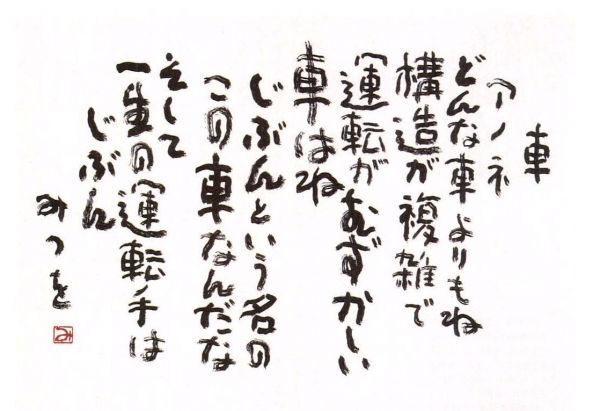 車
アノネ
どんな車よりもね
構造が複雑で
運転がむずかしい
車はね
じぶんという名の
この車なんだな
そして
一生の運転手は
じぶん
みつを
み